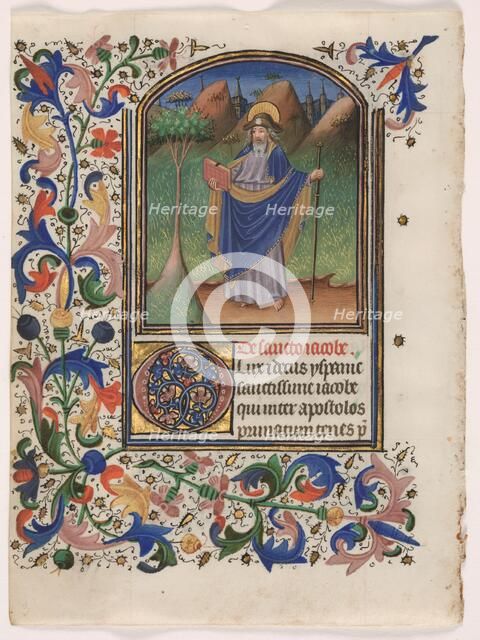 Heritage Heritage
Heritage Heritage
De sancto iacobe.
O Lux et decus yspanie
sanctissime iacobe
qui inter apostolos
primatum tenes p
Heritage Heritage